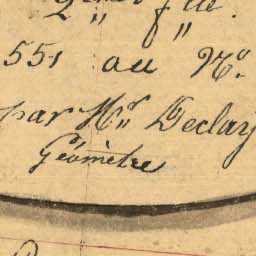 2" f"lle.
551 au No.
par Mr. Declay
Géomètre